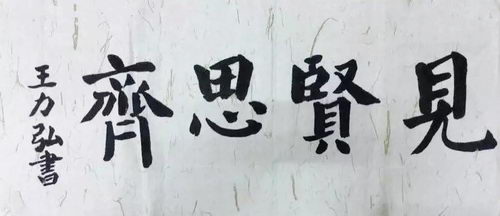 見賢思齊
王力弘書